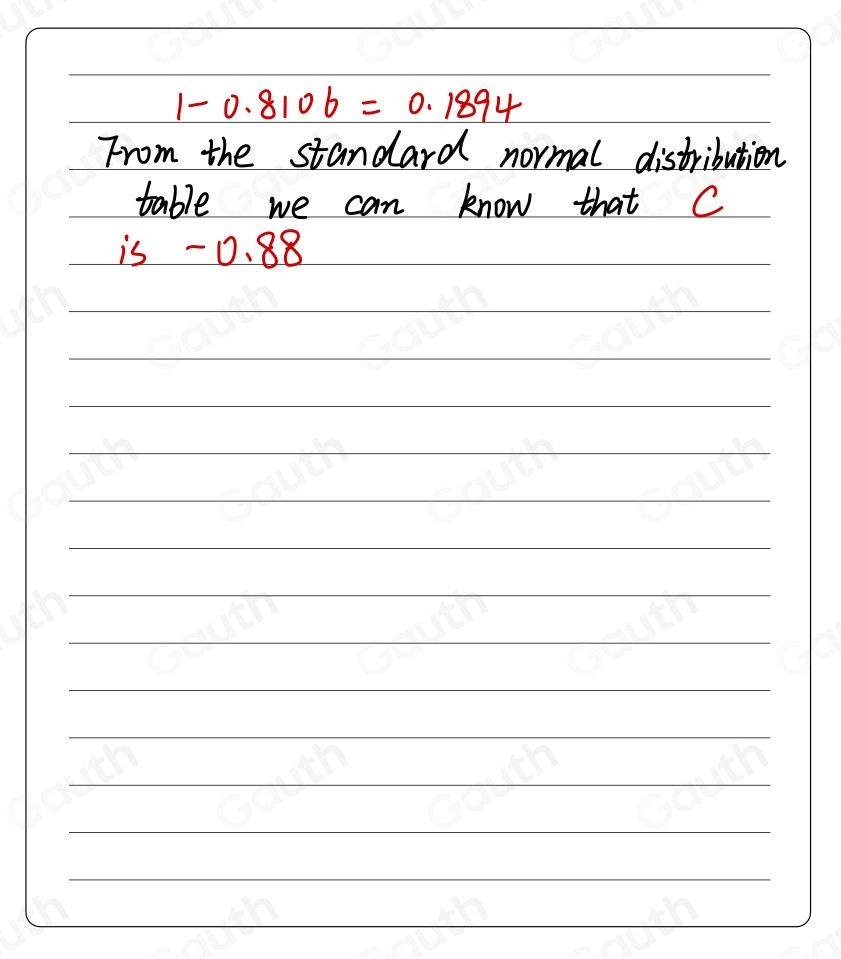 1 - 0.8106 = 0.1894
From the standard normal distribution
table we can know that C
is -0.88